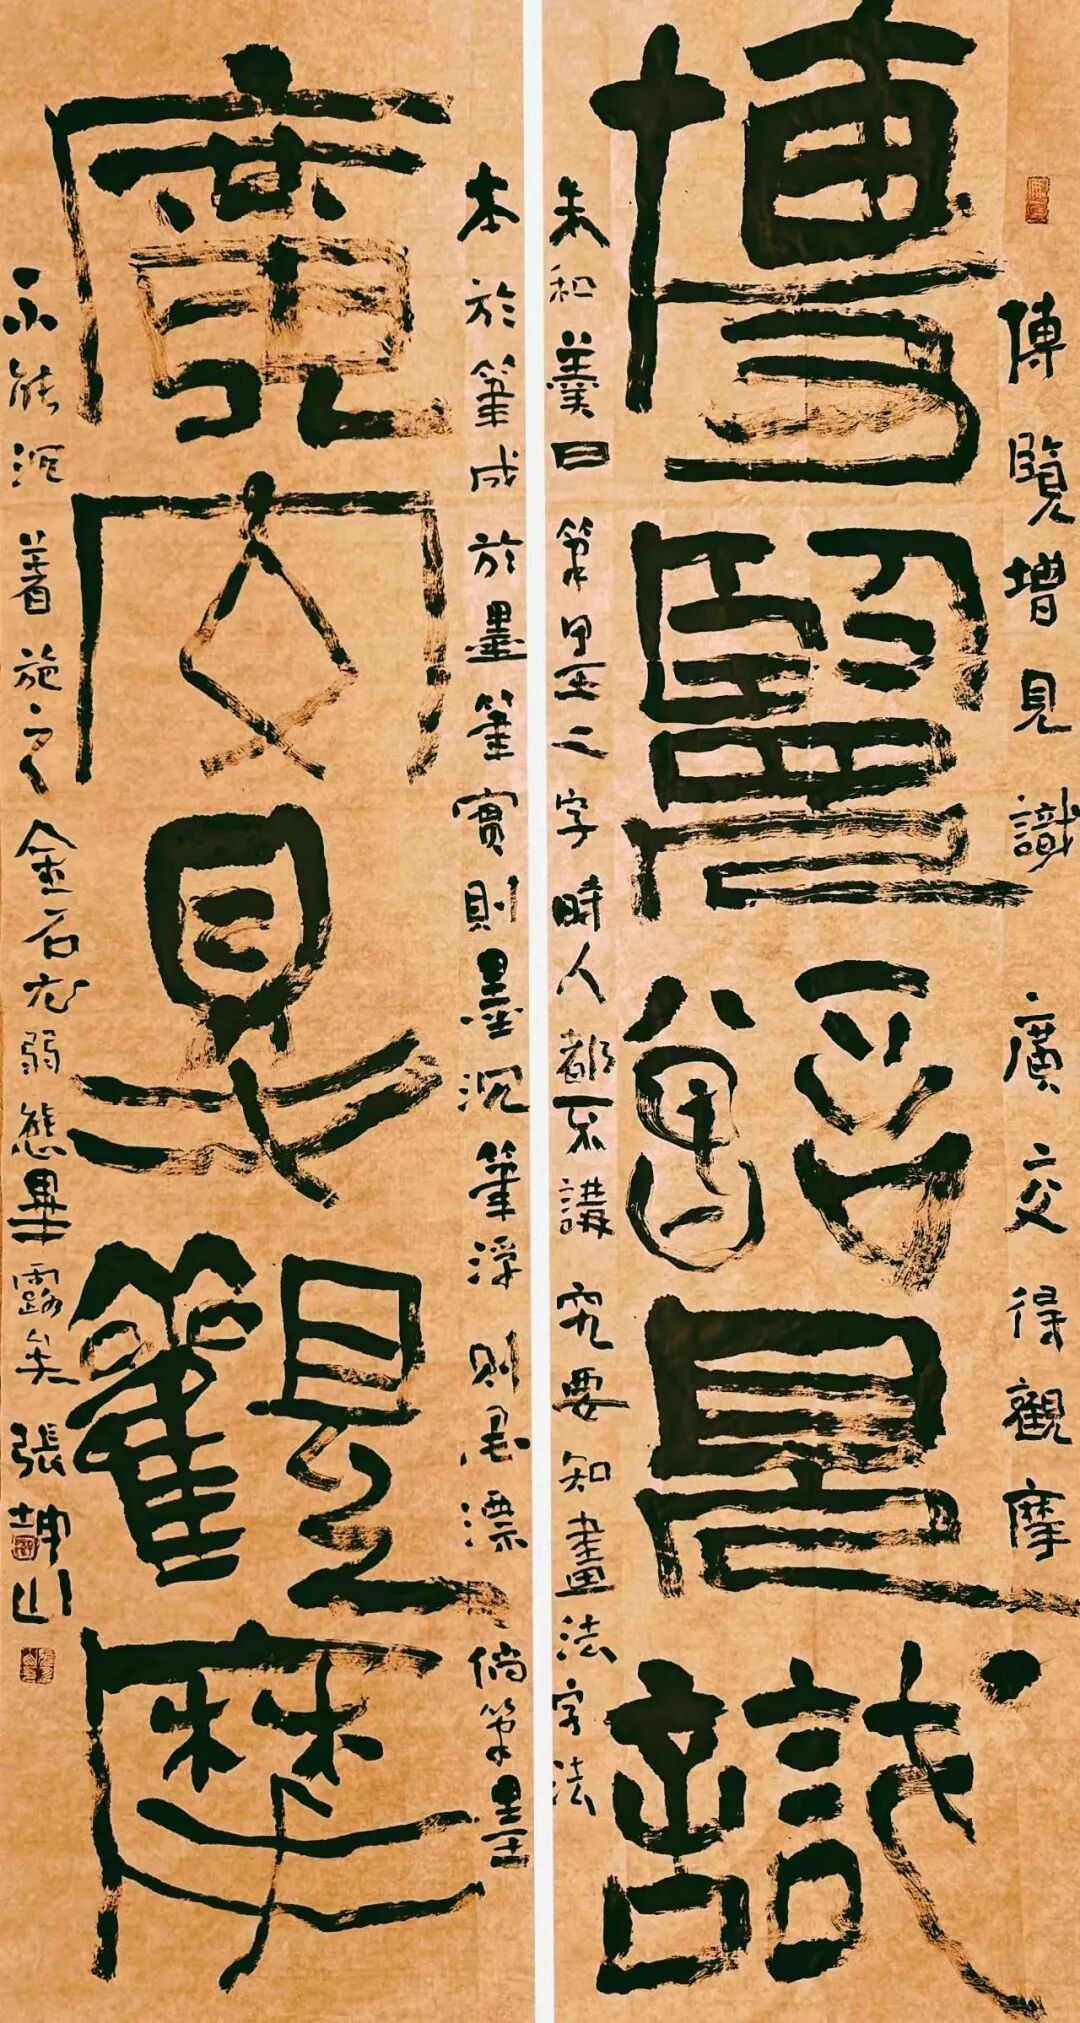 博覽增見識 廣交得觀摩
博覽增見識
朱和羹曰筆墨二字時人都不講究要知畫法字法
本於筆成於墨筆實則墨沉筆浮則墨漂倘筆墨
廣交得觀摩
不能沉著施之金石尤弱態畢露矣 張坤山